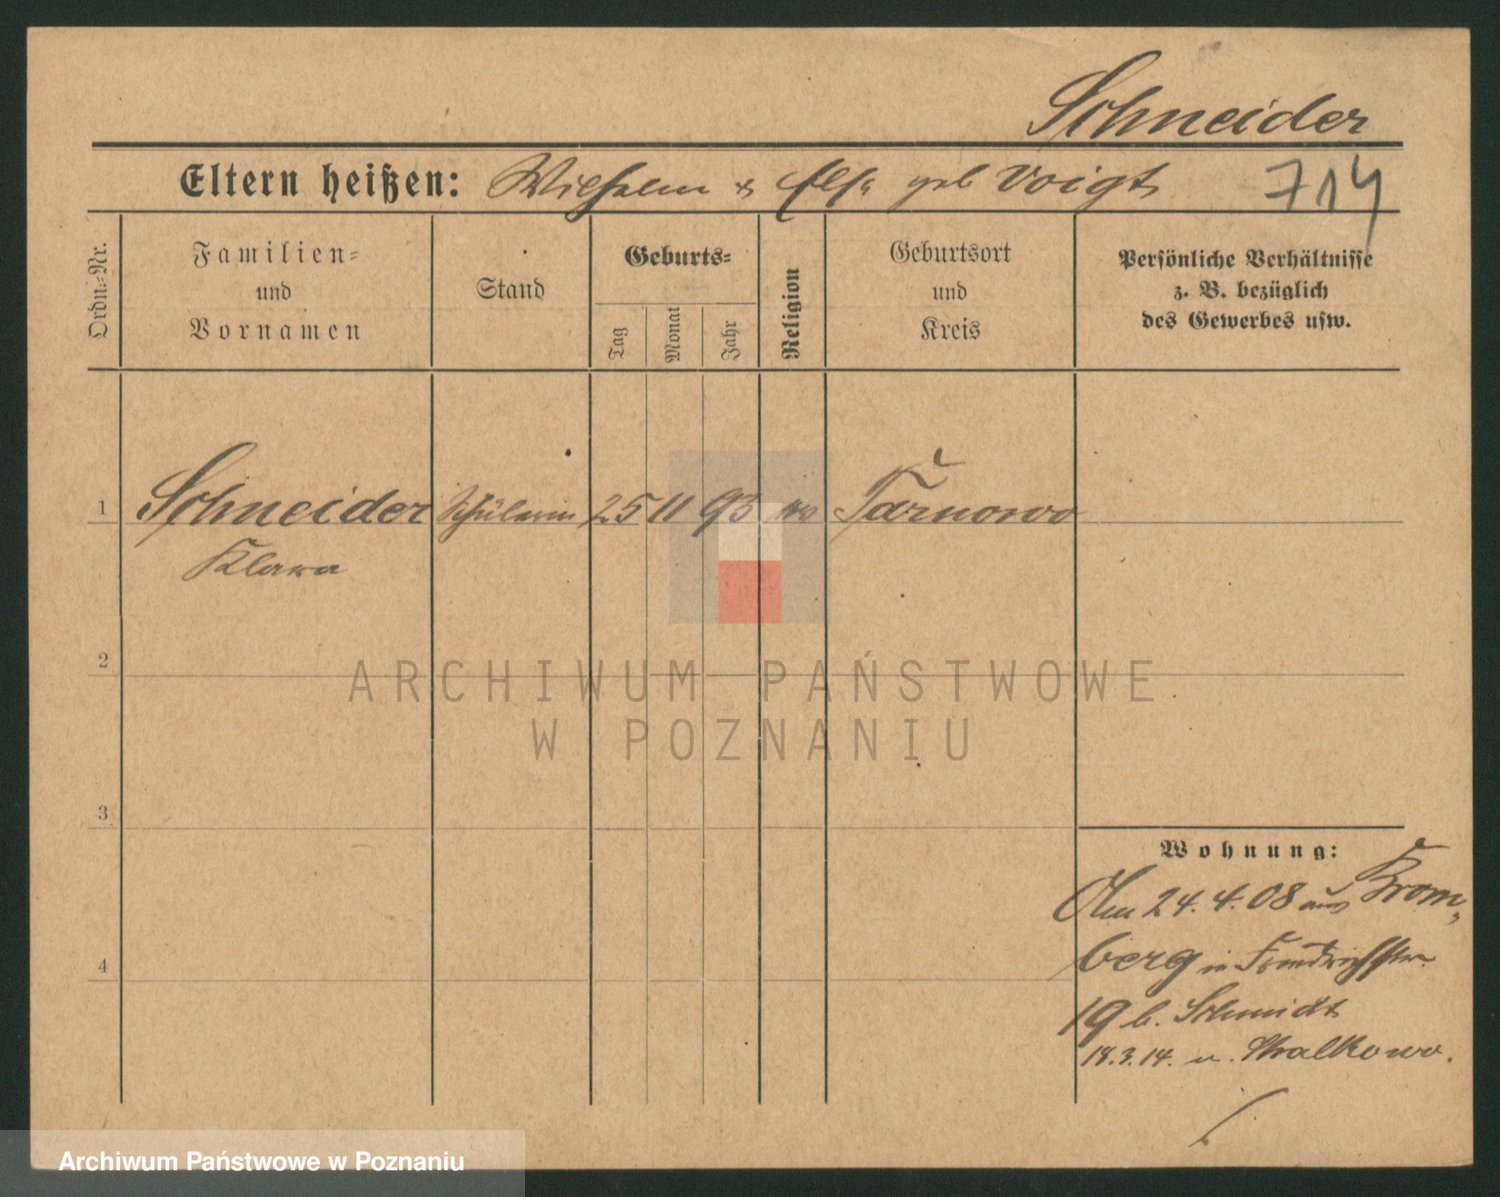 Schneider
Eltern heißen: Wilhelm & Else geb Voigt 714
Ordn.-Nr.
Familien-
und
Vornamen
Stand
Geburts-
Tag
Monat
Jahr
Religion
Geburtsort
und
Kreis
Persönliche Verhältnisse
z. B. bezüglich
des Gewerbes usw.
1 Schneider Schülerin 25 11 93 ev Tarnowo
Klara
2
ARCHIWUM PAŃSTWOWE
W POZNANIU
3
Wohnung:
24.4.08 aus Brom-
berg in Friedrichstr.
19 b. Schmidt
18.3.14. n. Stralkowo.
4
Archiwum Państwowe w Poznaniu